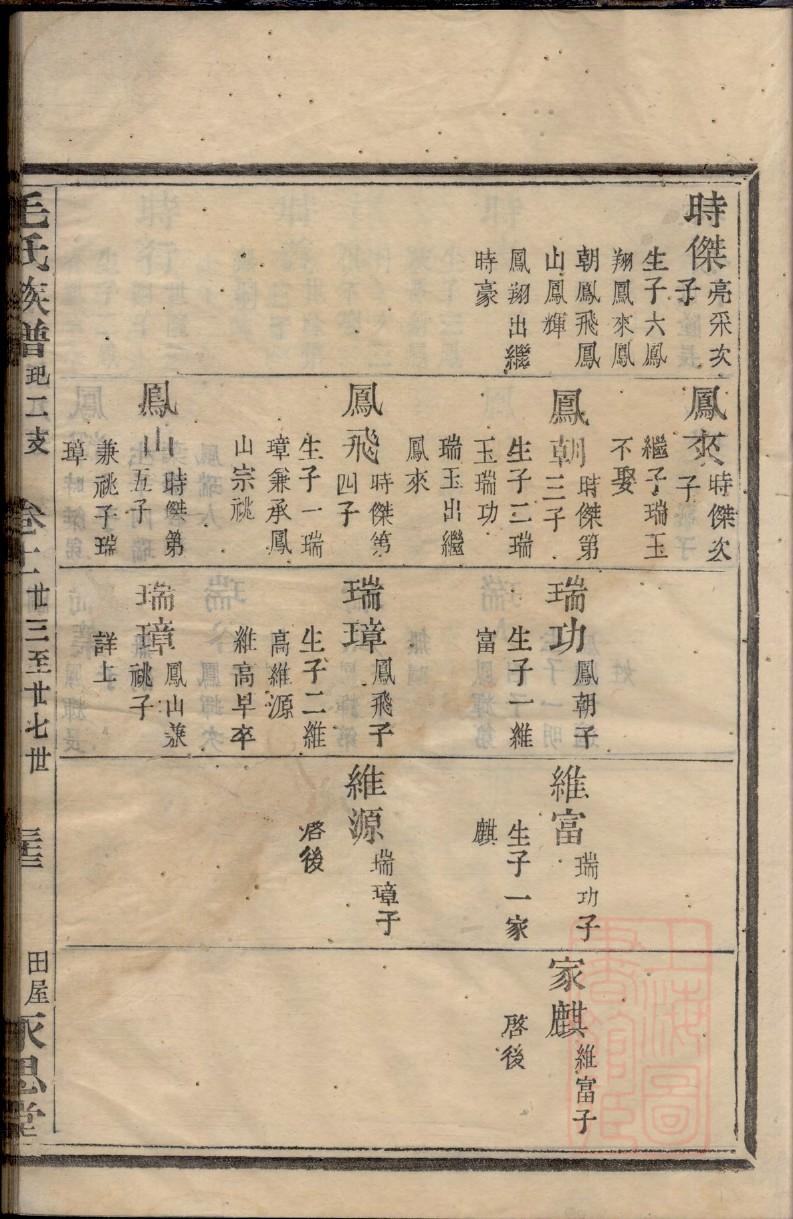 時傑
亮采次
子
生子六鳳
翔鳳來鳳
朝鳳飛鳳
山鳳輝
鳳翔出繼
時豪
鳳來
時傑次
子
繼子瑞玉
不娶
鳳朝
時傑第
三子
生子二瑞
玉瑞功
瑞玉出繼
鳳來
鳳飛
時傑第
四子
生子一瑞
璋兼承鳳
山宗祧
鳳山
時傑第
五子
兼祧子瑞
璋
瑞功
鳳朝子
生子一維
富
瑞璋
鳳飛子
生子二維
高維源
維高早卒
瑞璋
鳳山兼
祧子
詳上
維富
瑞功子
生子一家
麒
維源
瑞璋子
啓後
家麒
維富子
啓後
毛氏族譜
二支
廿三至廿七世
田屋
永思堂
上海圖
書館藏